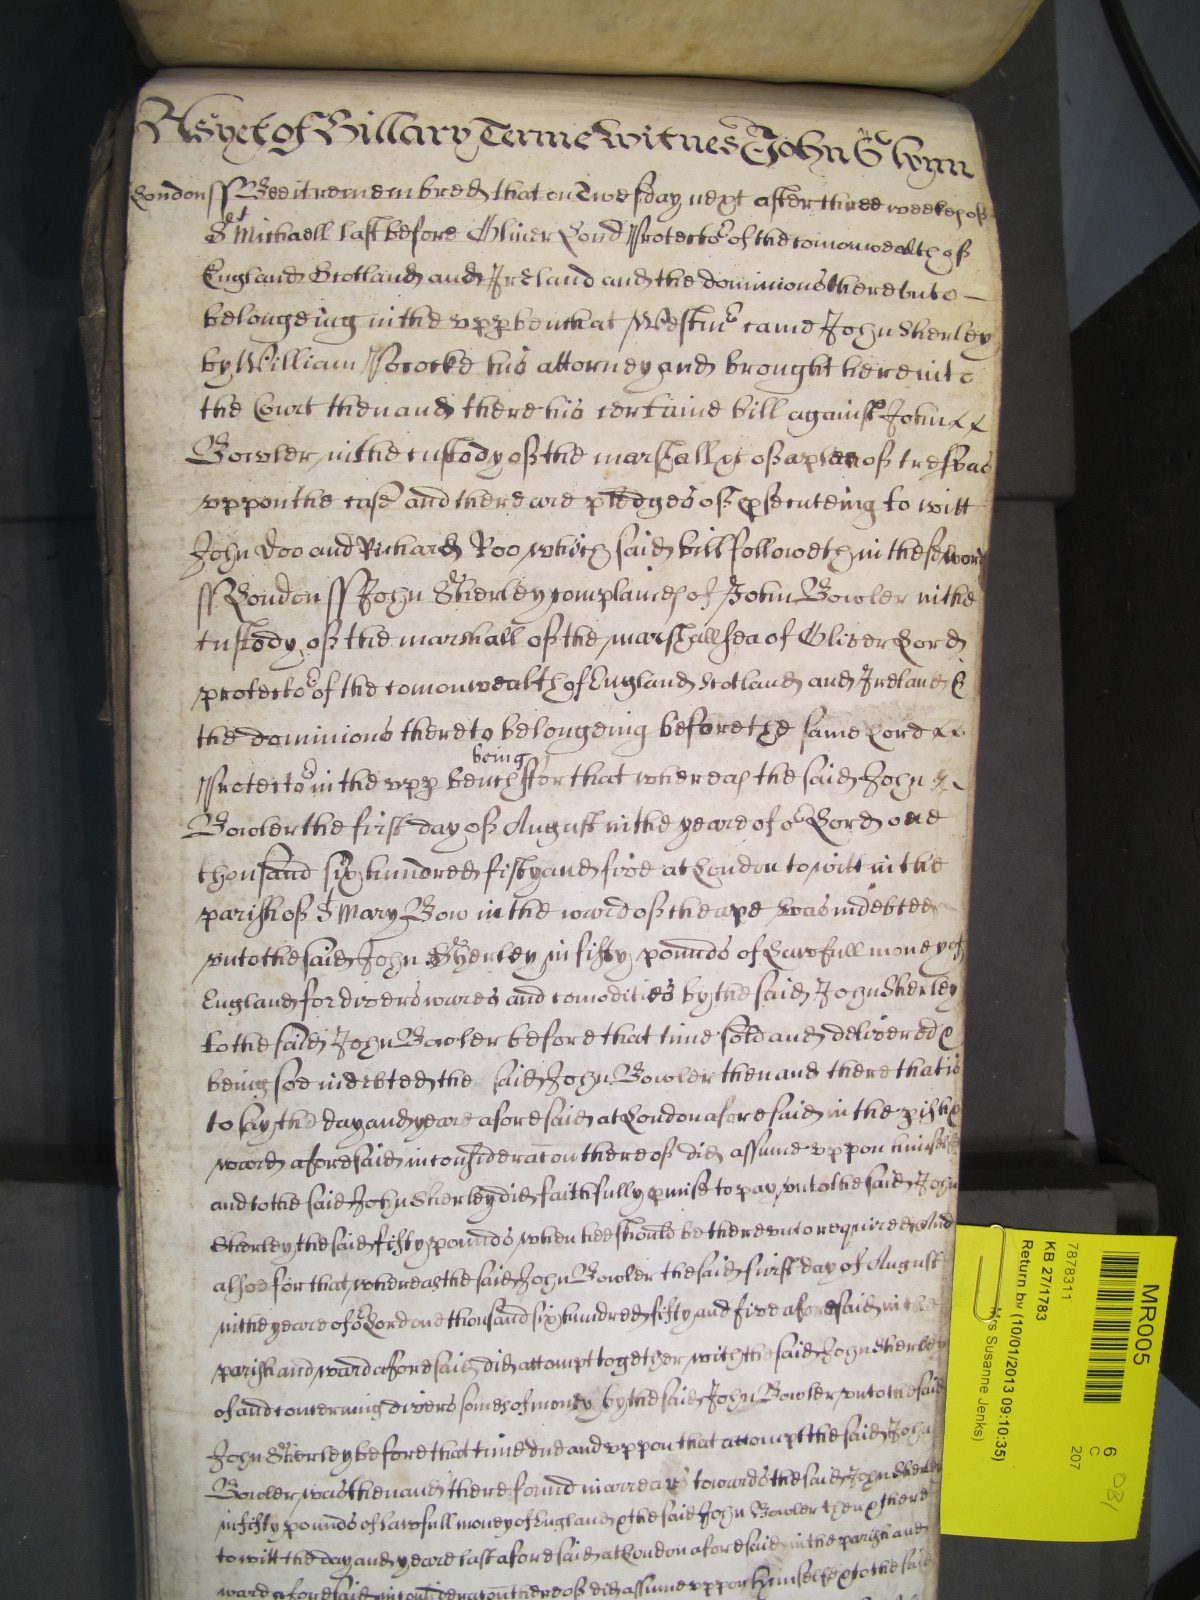 As yet of Hillary Terme Witnes John Glynn
London ss Bee it remembred that on Twesday next after three weekes of
St Michaell last before Oliver Lord Protector of the comonwealth of
England Scotland and Ireland and the dominions thereunto
belongeing in the upp bench at Westmr came John Sherley
by William Pococke his attorney and brought here into
the Court then and there his certaine bill against John
Bowler in the custody of the marshall &c of a plea of trespas
uppon the case and there are pledges of psecuteing to witt
John Doo and Richard Roo which said bill followeth in these words
ss London ss John Sherley complaines of John Bowler in the
custody of the marshall of the marshallsea of Oliver Lord
protector of the comonwealth of England Scotland and Ireland &
the dominions thereto belongeing before the same Lord
being
Protector in the upp bench ffor that whereas the said John
Bowler the first day of August in the yeare of or Lord one
thousand six hundred fifty and five at London to witt in the
parish of St Mary Bow in the ward of Cheape was indebted
unto the said John Sherley in fifty pounds of lawfull money of
England for divers wares and comodities by the said John Sherley
to the said John Bowler before that time sold and delivered &
being soe indebted the said John Bowler then and there that is
to say the day and yeare aforesaid at London aforesaid in the pish &
ward aforesaid in consideracon thereof did assume uppon himselfe
and to the said John Sherley did faithfully pmise to pay unto the said John
Sherley the said fifty pounds when hee should be thereunto required And
alsoe for that whereas the said John Bowler the said first day of August
in the yeare of or Lord one thousand six hundred fifty and five aforesaid in the
parish and ward aforesaid did accompt together with the said John Sherley
of and concerning divers somes of money by the said John Bowler unto the said
John Sherley before that time due and uppon that accompt the said John
Bowler was then and there found in arreares towards the said John Sherley
in fifty pounds of lawfull money of England & the said John Bowler then & there
to witt the day and yeare last aforesaid at London aforesaid in the parish and
ward aforesaid in consideracon thereof did assume uppon himselfe & to the said
MR005
7878311
KB 27/1783
Return by (10/01/2013 09:10:35)
Mrs Susanne Jenks)
6
C
207